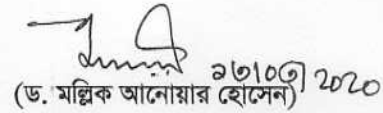 ২৩/০৩/2020
(ড. মল্লিক আনোয়ার হোসেন)